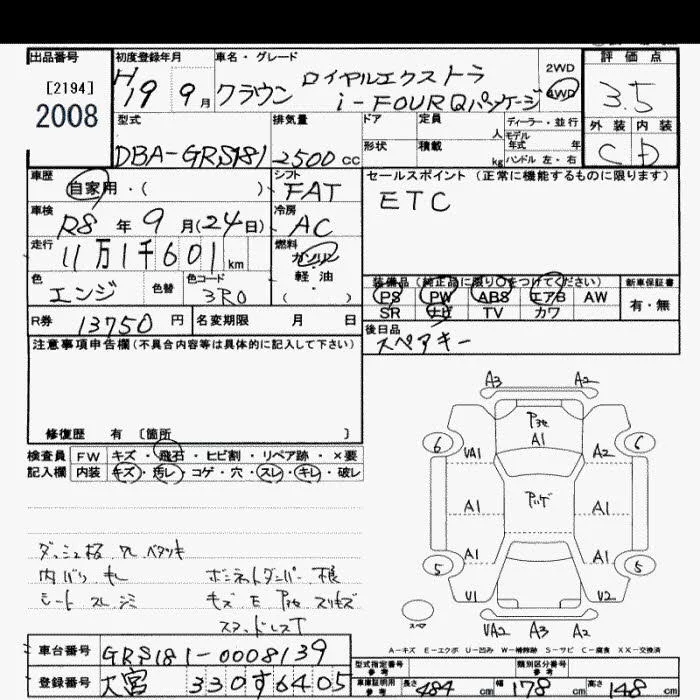 出品番号
[2194]
2008
初度登録年月
H19 9月
車名・グレード
クラウン ロイヤルエクストラ
i-FOURQパッケージ
2WD
4WD
評価点
3.5
外装 内装
C D
型式
DBA-GRS181
排気量
2500cc
ドア
定員 人
形状
積載 kg
ディーラー・並行
モデル年式 年
ハンドル 左・右
車歴
自家用・( )
シフト
FAT
セールスポイント (正常に機能するものに限ります)
ETC
車検
R8年9月(24日)
冷房
AC
走行
11万1千601km
燃料
ガソリン
軽・油
( )
色
エンジ
色替
色コード
3R0
装備品(純正品に限り○をつけてください)
PS PW ABS エアB AW
SR ナビ TV カワ
新車保証書
有・無
R券 13750円
名変期限 月 日
後日品
スペアキー
注意事項申告欄(不具合内容等は具体的に記入して下さい)
修復歴 有 〔箇所 〕
検査員 FW キズ・飛石・ヒビ割・リペア跡・×要
記入欄 内装 キズ・汚レ・コゲ・穴・スレ・キレ・破レ
A3 A2
A1
6 6
VA1 A2
A1 A1
A1 A1
5 5
V1 V2
スペア
VA2 A3 A2
A-キズ E-エクボ U-凹み W-補修跡 S-サビ C-腐食 XX-交換済
車台番号 GRS181-0008139
登録番号 大宮 330す6405
型式指定番号
参考
類別区分番号
参考
車庫証明用
参考
長さ 484cm 幅 178cm 高さ 148cm